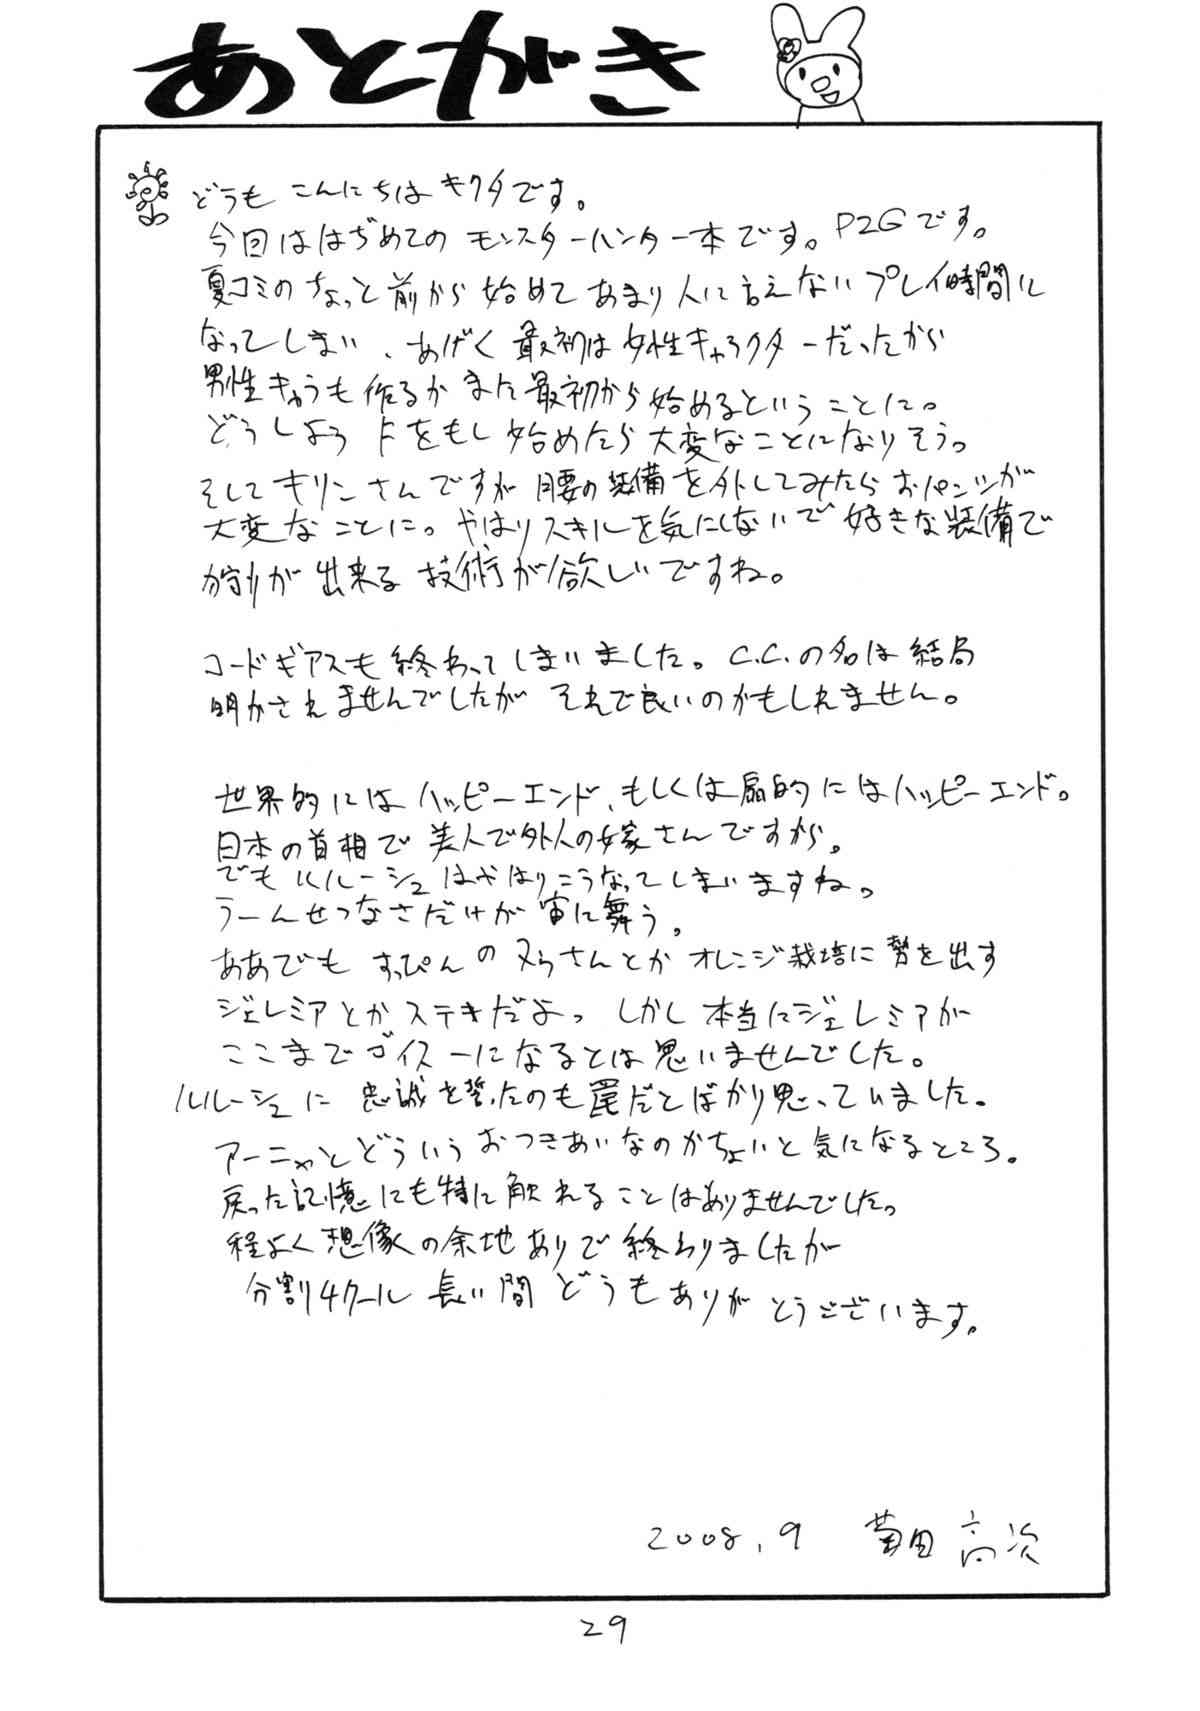 あとがき
どうも こんにちは キクタです。
今回ははぢめての モンスターハンター本です。P2Gです。
夏コミのちょっと前から始めてあまり人に言えないプレイ時間に
なってしまい、あげく最初は女性キャラクターだったから
男性キャラも作るかまた最初から始めるということに。
どうしよう Fをもし始めたら大変なことになりそうっ
そしてキリンさんですが腰の装備を外してみたらおパンツが
大変なことに。やはりスキルを気にしないで好きな装備で
狩りが出来る技術が欲しいですね。
コードギアスも終わってしまいました。C.C.の名は結局
明かされませんでしたがそれで良いのかもしれません。
世界的にはハッピーエンド、もしくは扇的にはハッピーエンド。
日本の首相で美人で外人の嫁さんですから。
でもルルーシュはやはりこうなってしまいますね。
うーんせつなさだけが宙に舞う。
ああでも すっぴんの ヌゥさんとかオレンジ栽培に勢を出す
ジェレミアとかステキだよっ しかし本当にジェレミアが
ここまでゴイスーになるとは思いませんでした。
ルルーシュに 忠誠を誓ったのも罠だとばかり思っていました。
アーニャとどういうおつきあいなのかちょいと気になるところ。
戻った記憶にも特に触れることはありませんでした。
程よく想像の余地ありで終わりましたが
分割4クール 長い間 どうもありがとうございます。
2008.9 菊田 高次
29